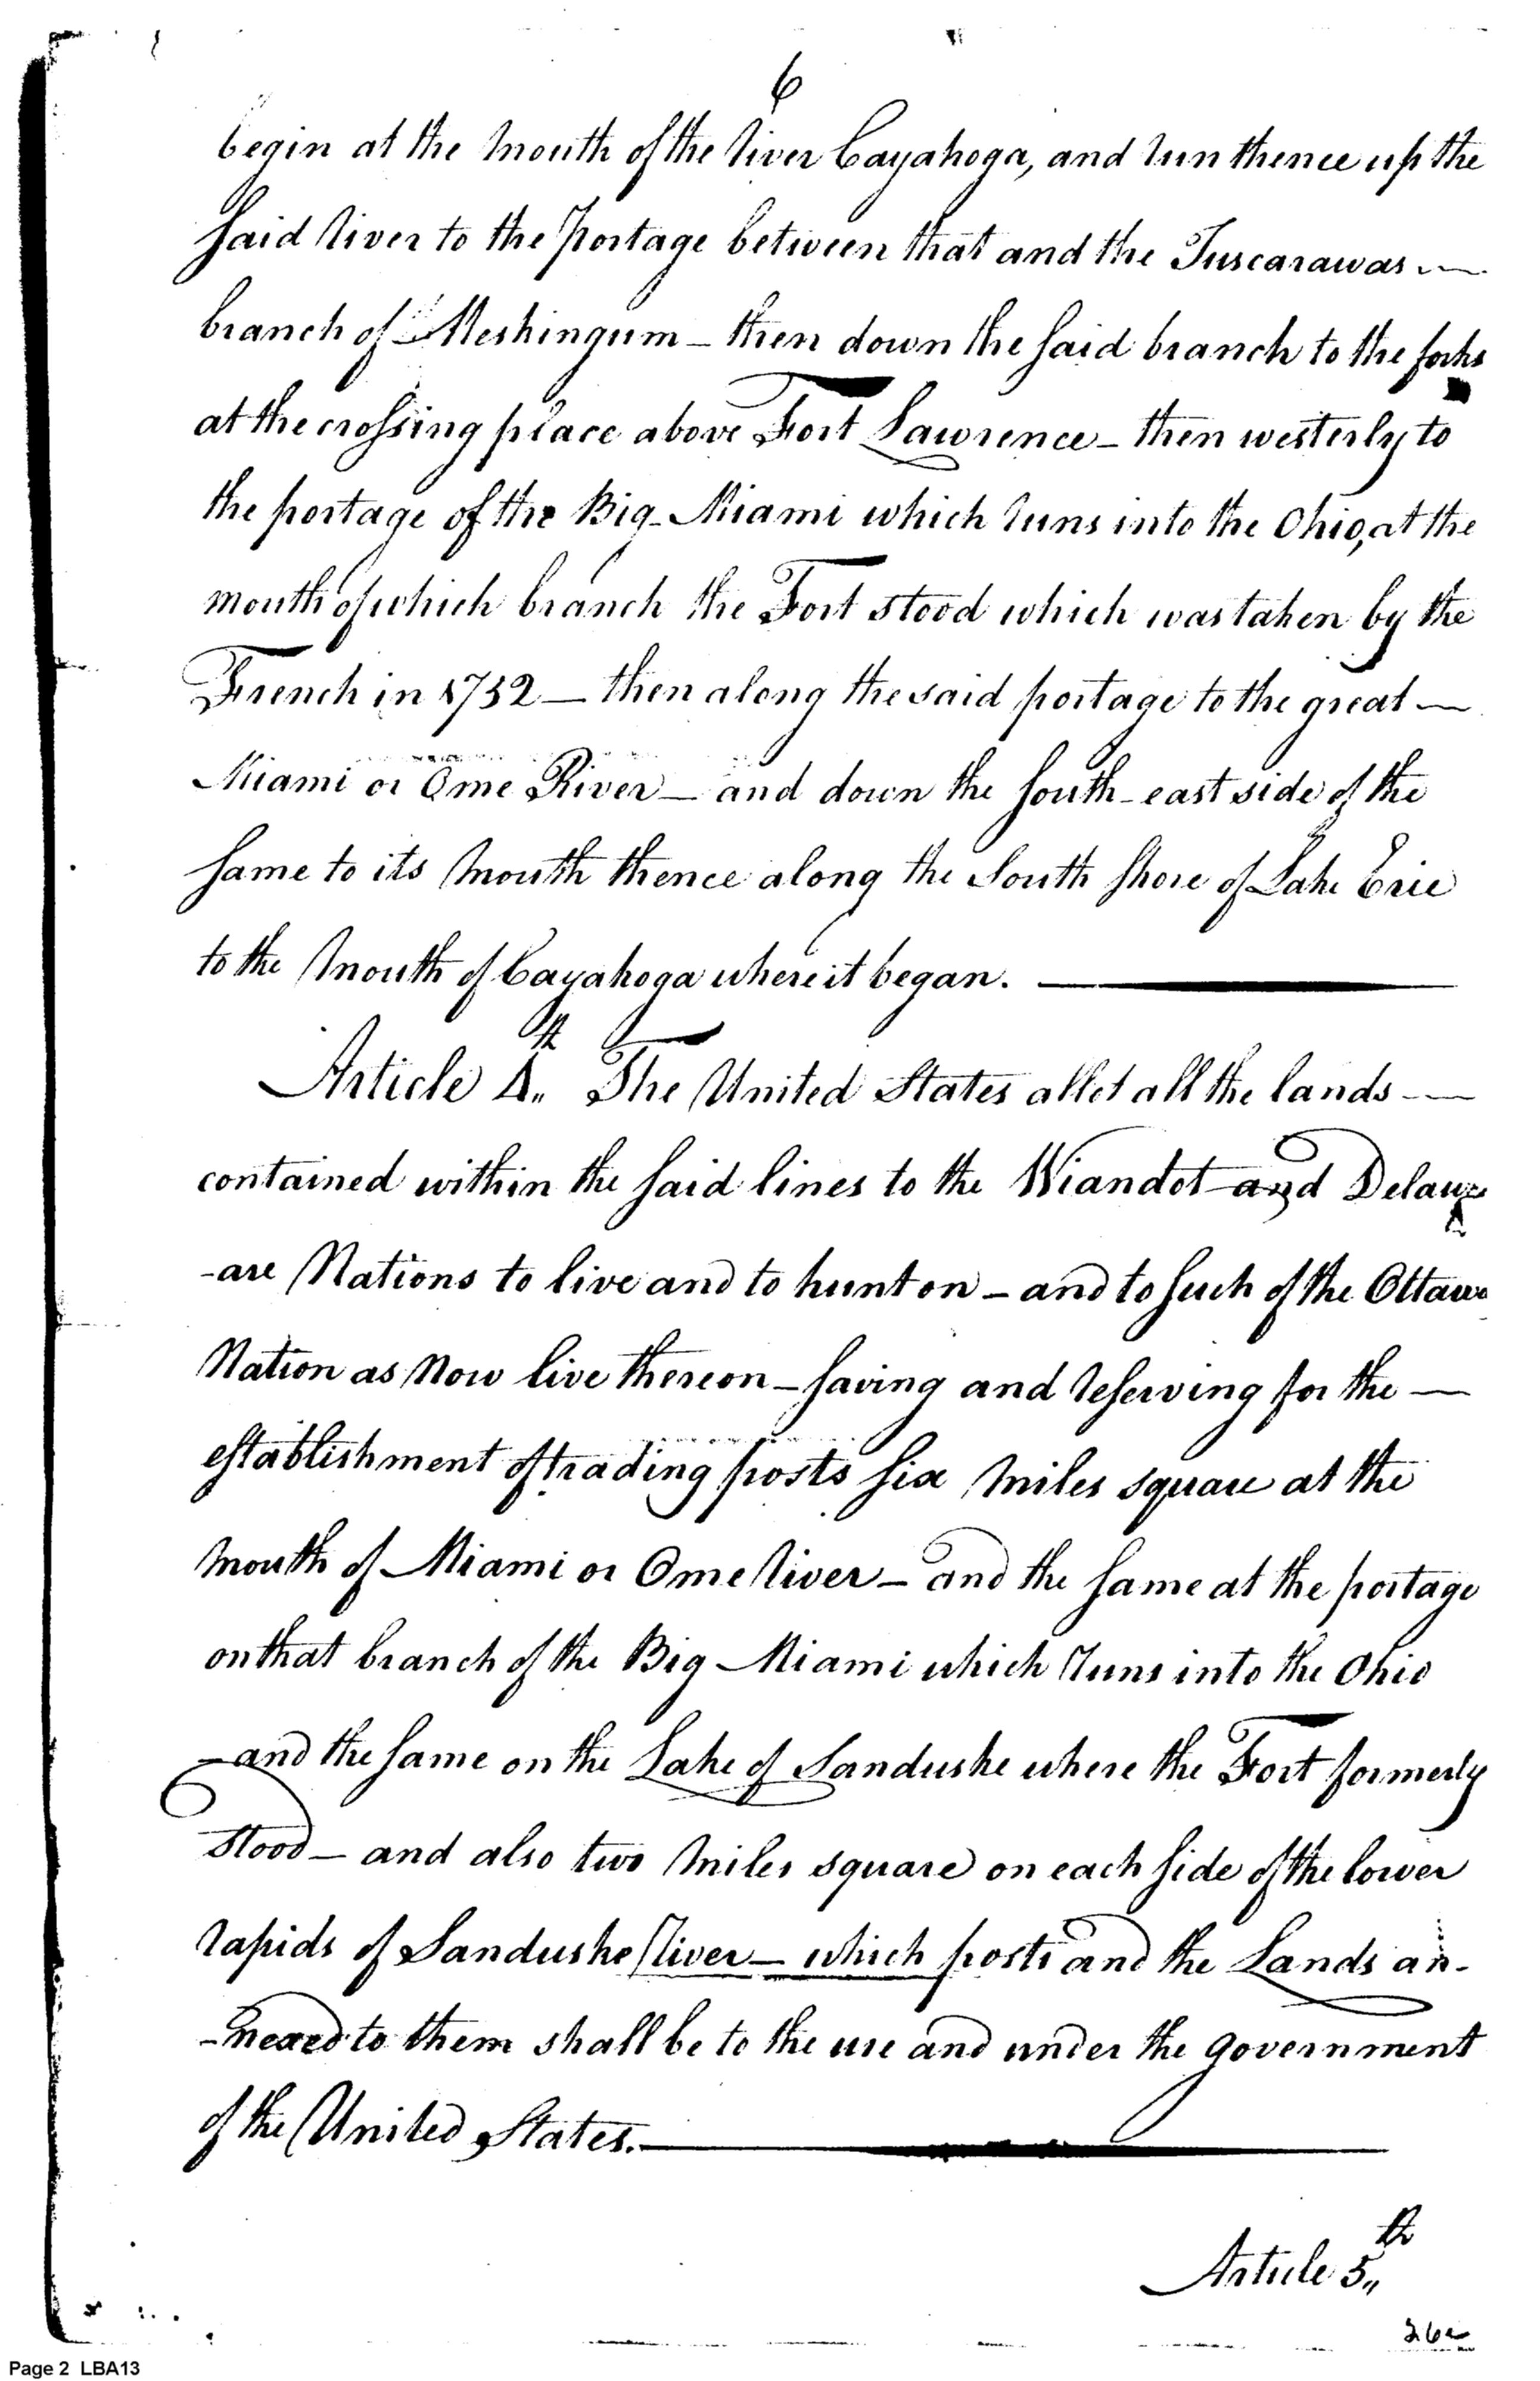 6
begin at the mouth of the river Cayahoga, and run thence up the
said river to the portage between that and the Tuscarawas —
branch of Meskingum – then down the said branch to the forks
at the crossing place above Fort Lawrence – then westerly to
the portage of the Big-Miami which runs into the Ohio, at the
mouth of which branch the Fort stood which was taken by the
French in 1752 — then along the said portage to the great —
Miami or Ome River – and down the south-east side of the
same to its mouth thence along the South shore of Lake Erie
to the mouth of Cayahoga where it began. —
Article 4th. The United States allot all the lands —
contained within the said lines to the Wiandot and Delaw
-are Nations to live and to hunt on – and to such of the Ottawa
Nation as now live thereon – saving and reserving for the —
establishment of trading posts six miles square at the
mouth of Miami or Ome river – and the same at the portage
on that branch of the Big Miami which runs into the Ohio
– and the same on the Lake of Sanduske where the Fort formerly
stood – and also two miles square on each side of the lower
rapids of Sanduske river – which posts and the Lands an-
-nexed to them shall be to the use and under the government
of the United States. —
Article 5th
Page 2 LBA13